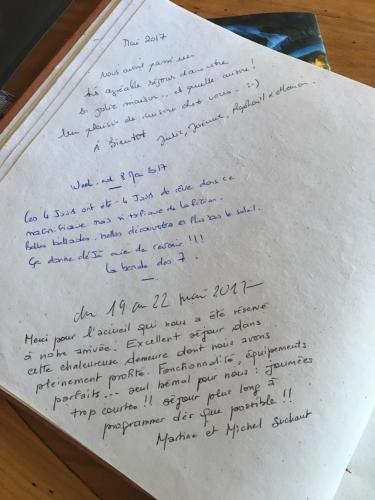 Mai 2017
Nous avons passé un
très agréable séjour dans votre
si jolie maison... et quelle cuisine !
Un plaisir de cuisiner chez vous. :-)
A Bientôt Julie, Jérémie, Raphaël & Manon
Week-end 8 Mai 2017
Ces 4 Jours ont été 4 Jours de rêve dans ce
magnifique mas si typique de la Région.
Belles ballades, belles découvertes et Plus bas le soleil.
Ça donne déjà envie de revenir !!!
La bande des 7.
du 19 au 22 mai 2017
Merci pour l'accueil qui nous a été réservé
à notre arrivée. Excellent séjour dans
cette chaleureuse demeure dont nous avons
pleinement profité. Fonctionnalité, équipements
parfaits... seul bémol pour nous : journées
trop courtes !! séjour plus long à
programmer dès que possible !!
Martine et Michel Suchaut